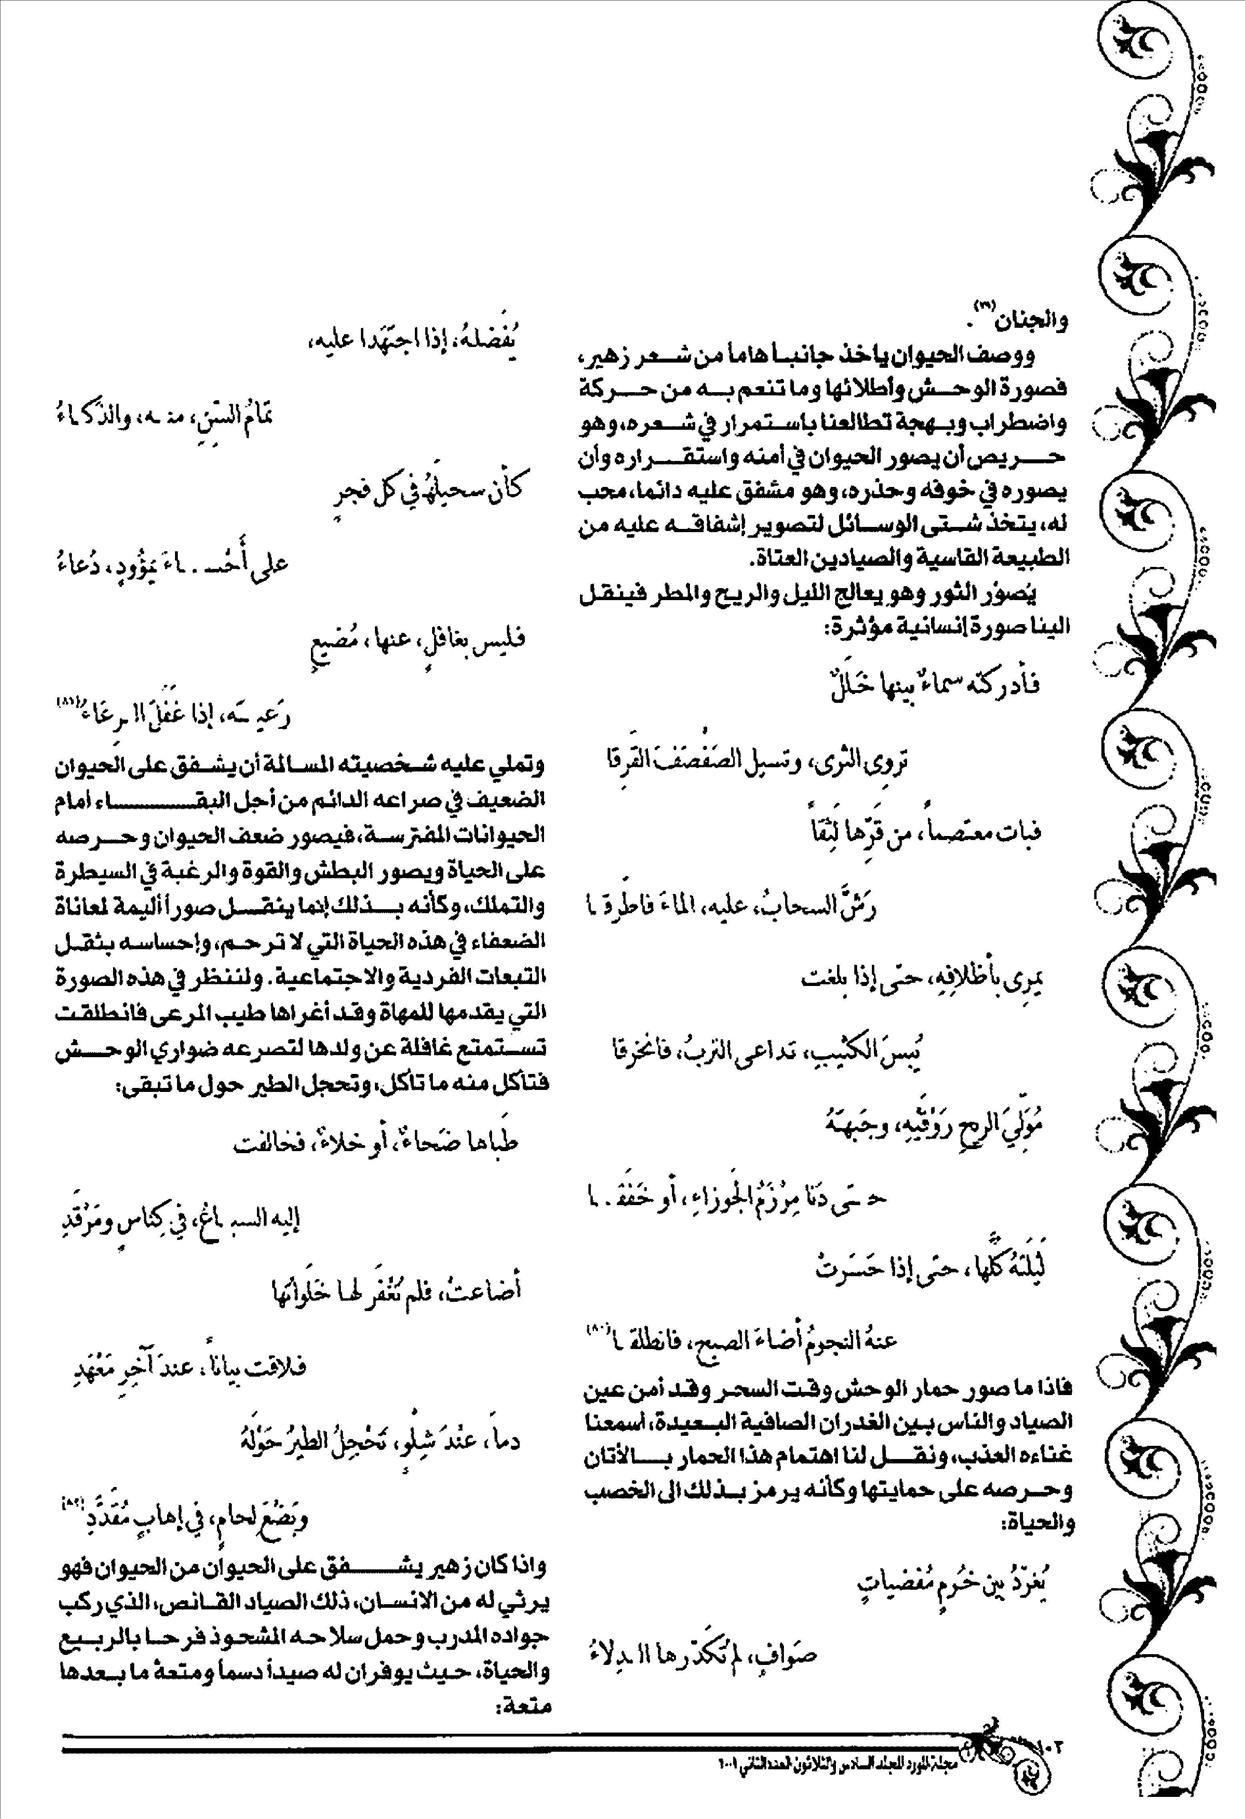 والجنان(٧٩).
ووصف الحيوان ياخذ جانبـاً هاماً من شـعر زهير،
فصورة الوحـش وأطلائها وما تنعم بـه من حـركة
واضطراب وبـهجة تطالعنا باسـتمرار في شـعره، وهو
حـريص أن يصور الحيوان في أمنه واستقـراره وأن
يصوره في خوفه وحذره، وهو مشفق عليه دائما، محب
له، يتخذ شـتى الوسـائل لتصوير إشفاقـه عليه من
الطبيعة القاسية والصيادين العتاة.
يُصوّر الثور وهو يعالج الليل والريح والمطر فينقل
الينا صورة إنسانية مؤثرة:
فأدركته سماءٌ بينها خَلَلٌ
تروِي الثرى، وتسيل الصَفْصَفَ القَرِقا
فبات معتصماً، من قَرِّها لَثِقاً
رَشَّ السحابُ، عليه، الماءَ فاطّرقا
يمرِى بأظلافِهِ، حتّى إذا بلغت
يُبسَ الكثيبِ، تداعى التربُ، فانخرقا
مُوَلِّيَ الريحِ رَوْقَيْهِ، وجَبهتَهُ
حتّى دَنا مِرْزَمُ الجَوزاءِ، أو خَفَقا
لَيْلَتَهُ كلَّها، حتى إذا حَسَرتْ
عنهُ النجومُ أضاءَ الصبح، فانطلقا(٨٠)
فاذا ما صور حمار الوحش وقت السحر وقد أمن عين
الصياد والناس بـين الغدران الصافية البـعيدة، أسمعنا
غناءه العذب، ونقـل لنا اهتمام هذا الحمار بـالأتان
وحـرصه على حمايتها وكأنه يرمز بـذلك الى الخصب
والحياة:
يُغرّدُ بين خُرُمٍ مُفضياتٍ
صَوافٍ، لم تُكَدّرها الدِلاءُ
يُفَضلهُ، إذا اجتَهَدا عليه،
تمامُ السِّنِ، منه، والذَكاءُ
كأن سحيلَهُ في كل فجرٍ
على أَحْساءَ يَمْؤُودٍ، دُعاءُ
فليس بغافلٍ، عنها، مُضيعٍ
رَعيتَه، إذا غَفَلَ الرِعَاءُ(٨١)
وتملي عليه شـخصيته المسالمة أن يشـفق على الحيوان
الضعيف في صراعه الدائم من أجل البقـاء أمام
الحيوانات المفترسـة، فيصور ضعف الحيوان وحـرصه
على الحياة ويصور البطش والقوة والرغبة في السيطرة
والتملك، وكأنه بـذلك إنما ينقـل صوراً أليمة لمعاناة
الضعفاء في هذه الحياة التي لا ترحـم، وإحساسه بثقـل
التبعات الفردية والاجتماعية. ولننظر في هذه الصورة
التي يقدمها للمهاة وقد أغراها طيب المرعى فانطلقت
تسـتمتع غافلة عن ولدها لتصرعه ضواري الوحـش
فتأكل منه ما تأكل، وتحجل الطير حول ما تبقى:
طَباها ضَحاءٌ، أو خلاءٌ، فخالفت
إليه السباعُ، في كِناسٍ ومَرْقَدِ
أضاعتْ، فلم تُغْفَر لها خَلَواتها
فلاقت بياناً، عندَ آخِرِ مَعْهَدِ
دماً، عنْدَ شِلْوٍ، تَحْجلُ الطيرُ حَوْلَهُ
وبَضْعَ لحامٍ، في إهابٍ مُقَدَّدِ(٨٢)
واذا كان زهير يشـفق على الحيوان من الحيوان فهو
يرثي له من الانسـان، ذلك الصياد القـانص، الذي ركب
جواده المدرب وحمل سلاحه المشحوذ فرحـا بالربـيع
والحياة، حـيث يوفران له صيداً دسماً ومتعة ما بـعدها
متعة:
١٠٢
مجلة المورد المجلد السادس والثلاثون العدد الثاني ٢٠٠٩